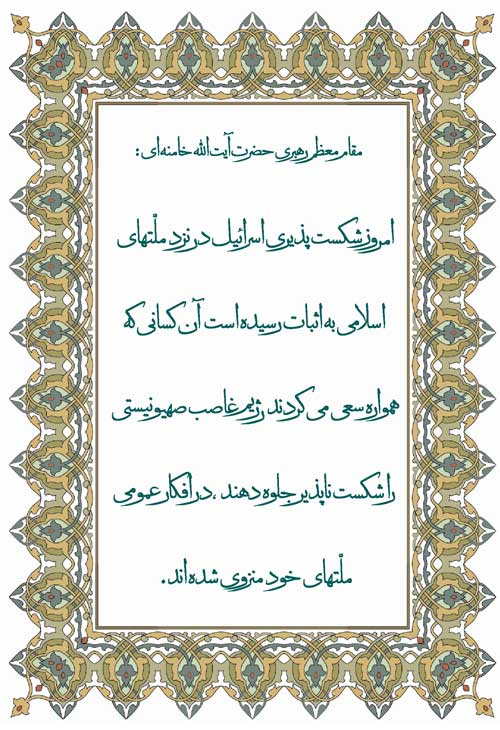 مقام معظم رهبری حضرت آیت‌الله خامنه‌ای :
امروز شکست پذیری اسرائیل در نزد ملّتهای
اسلامی به اثبات رسیده است آن کسانی که
همواره سعی می کردند رژیم غاصب صهیونیستی
را شکست ناپذیر جلوه دهند ، در افکار عمومی
ملّتهای خود منزوی شده‌اند .